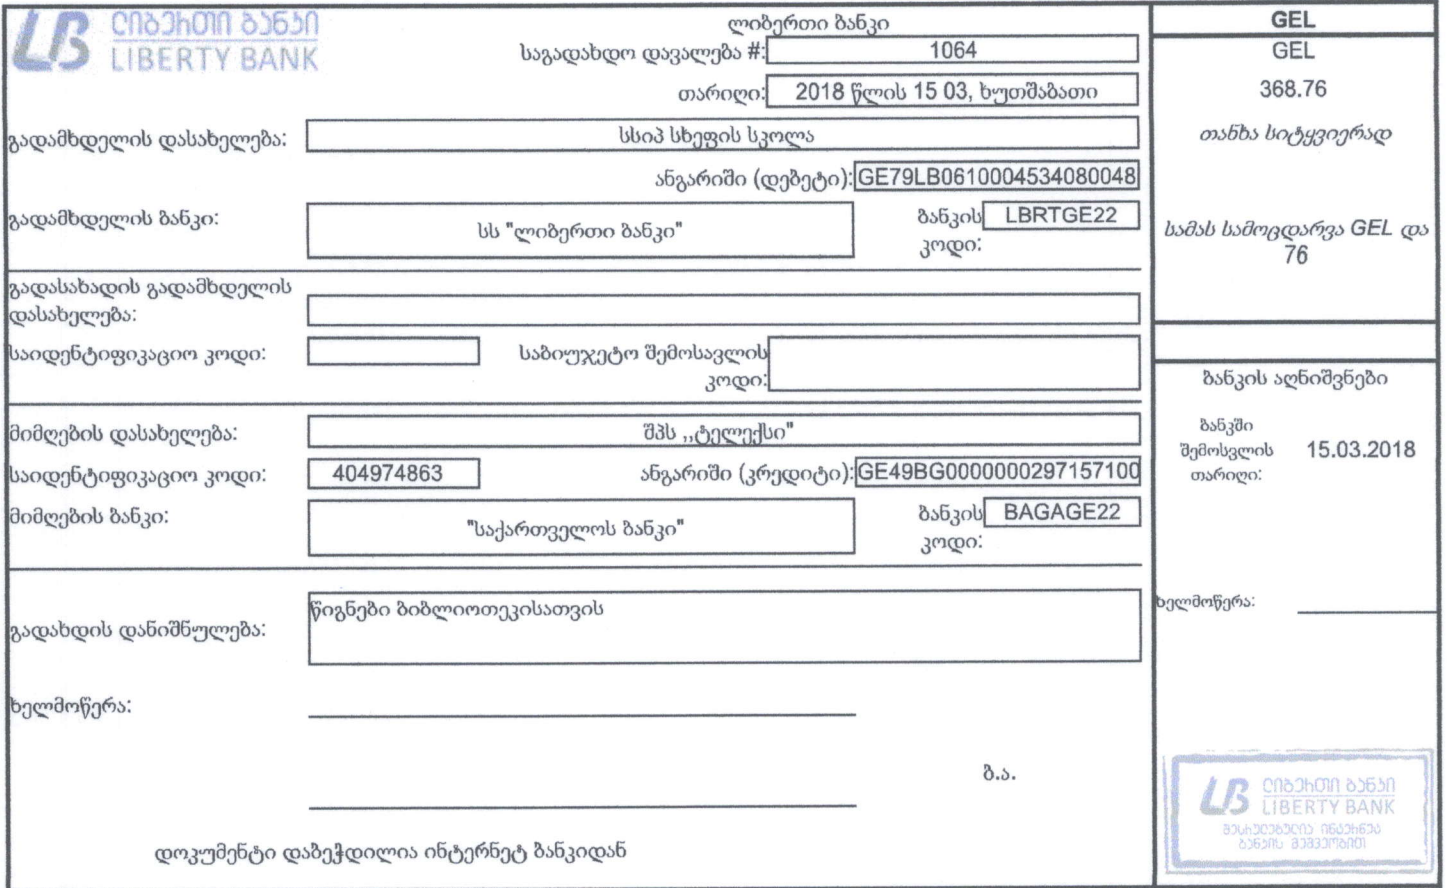 ლიბერთი ბანკი
LIBERTY BANK
ლიბერთი ბანკი
საგადახდო დავალება #: 1064
თარიღი: 2018 წლის 15 03, ხუთშაბათი
გადამხდელის დასახელება: სსიპ სხეფის სკოლა
ანგარიში (დებეტი): GE79LB0610004534080048
გადამხდელის ბანკი: სს "ლიბერთი ბანკი" ბანკის კოდი: LBRTGE22
გადასახადის გადამხდელის
დასახელება:
საიდენტიფიკაციო კოდი: საბიუჯეტო შემოსავლის
კოდი:
მიმღების დასახელება: შპს ,,ტელექსი"
საიდენტიფიკაციო კოდი: 404974863 ანგარიში (კრედიტი): GE49BG0000000297157100
მიმღების ბანკი: "საქართველოს ბანკი" ბანკის კოდი: BAGAGE22
გადახდის დანიშნულება: წიგნები ბიბლიოთეკისათვის
ხელმოწერა:
ბ.ა.
დოკუმენტი დაბეჭდილია ინტერნეტ ბანკიდან
GEL
GEL
368.76
თანხა სიტყვიერად
სამას სამოცდარვა GEL და
76
ბანკის აღნიშვნები
ბანკში
შემოსვლის 15.03.2018
თარიღი:
ხელმოწერა:
ლიბერთი ბანკი
LIBERTY BANK
შესრულებულია ინტერნეტ
ბანკის მეშვეობით